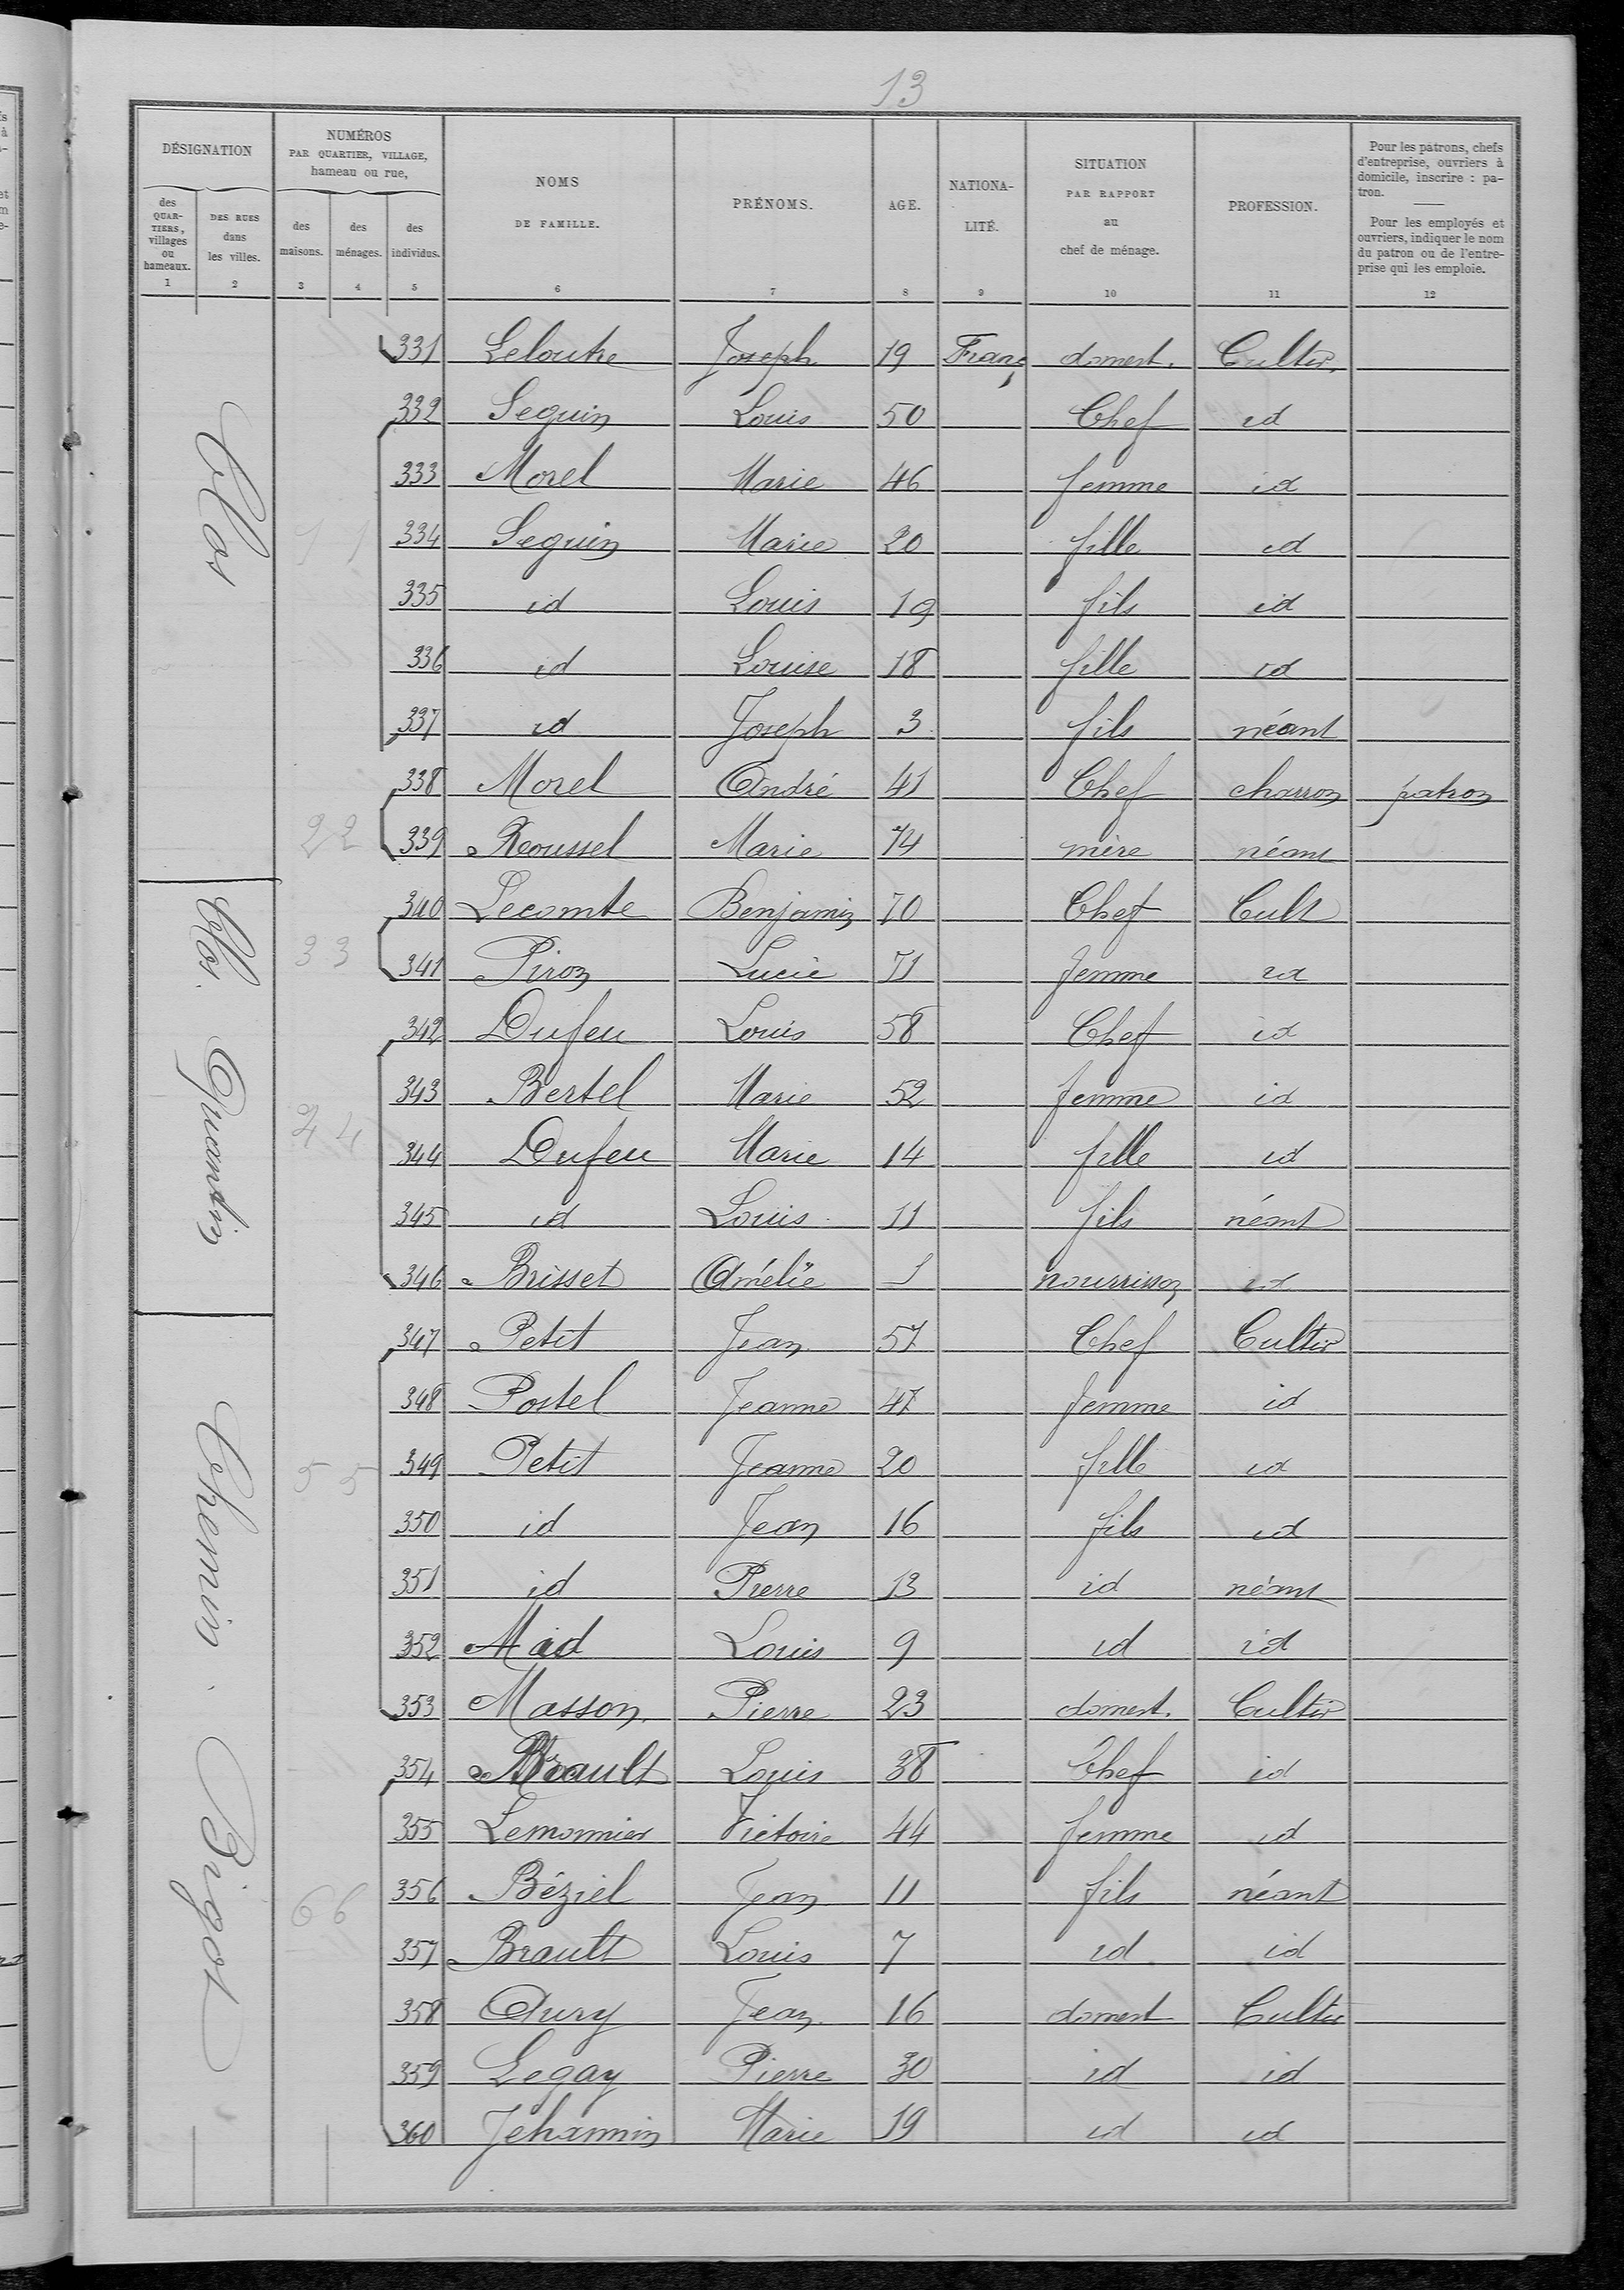 13
DÉSIGNATION
NUMÉROS
PAR QUARTIER, VILLAGE,
hameau ou rue,
des
QUAR-
TIERS,
villages
ou
hameaux.
DES RUES
dans
les villes.
des
maisons.
des
ménages.
des
individus.
NOMS
DE FAMILLE.
PRÉNOMS.
AGE.
NATIONA-
LITÉ.
SITUATION
PAR RAPPORT
au
chef de ménage.
PROFESSION.
Pour les patrons, chefs
d'entreprise, ouvriers à
domicile, inscrire : pa-
tron.
Pour les employés et
ouvriers, indiquer le nom
du patron ou de l'entre-
prise qui les emploie.
1 2 3 4 5 6 7 8 9 10 11 12
331 Leloutre Joseph 19 Franç domest. Cultiv.
Clos
332 Seguin Louis 50 Chef id
333 Morel Marie 46 femme id
1 1 334 Seguin Marie 20 fille id
335 id Louis 19 fils id
336 id Louise 18 fille id
337 id Joseph 3 fils néant
338 Morel André 41 Chef charron patron
2 2 339 Roussel Marie 74 mère néant
Clos Quantin
340 Lecomte Benjamin 70 Chef Cult
3 3 341 Piron Lucie 71 femme id
342 Dufeu Louis 58 Chef id
343 Bertel Marie 52 femme id
4 4 344 Dufeu Marie 14 fille id
345 id Louis 11 fils néant
346 Brisset Amélie 1 nourrisson id
Chemin Bigot
347 Petit Jean 57 Chef Cultiv
348 Postel Jeanne 47 femme id
5 5 349 Petit Jeanne 20 fille id
350 id Jean 16 fils id
351 id Pierre 13 id néant
352 id Louis 9 id id
353 Masson Pierre 23 domest. Cultiv
354 Brault Louis 38 Chef id
355 Lemonnier Victoire 44 femme id
6 6 356 Béziel Jean 11 fils néant
357 Brault Louis 7 id id
358 Aury Jean 16 domest Cultiv
359 Legay Pierre 30 id id
360 Jehannin Marie 19 id id